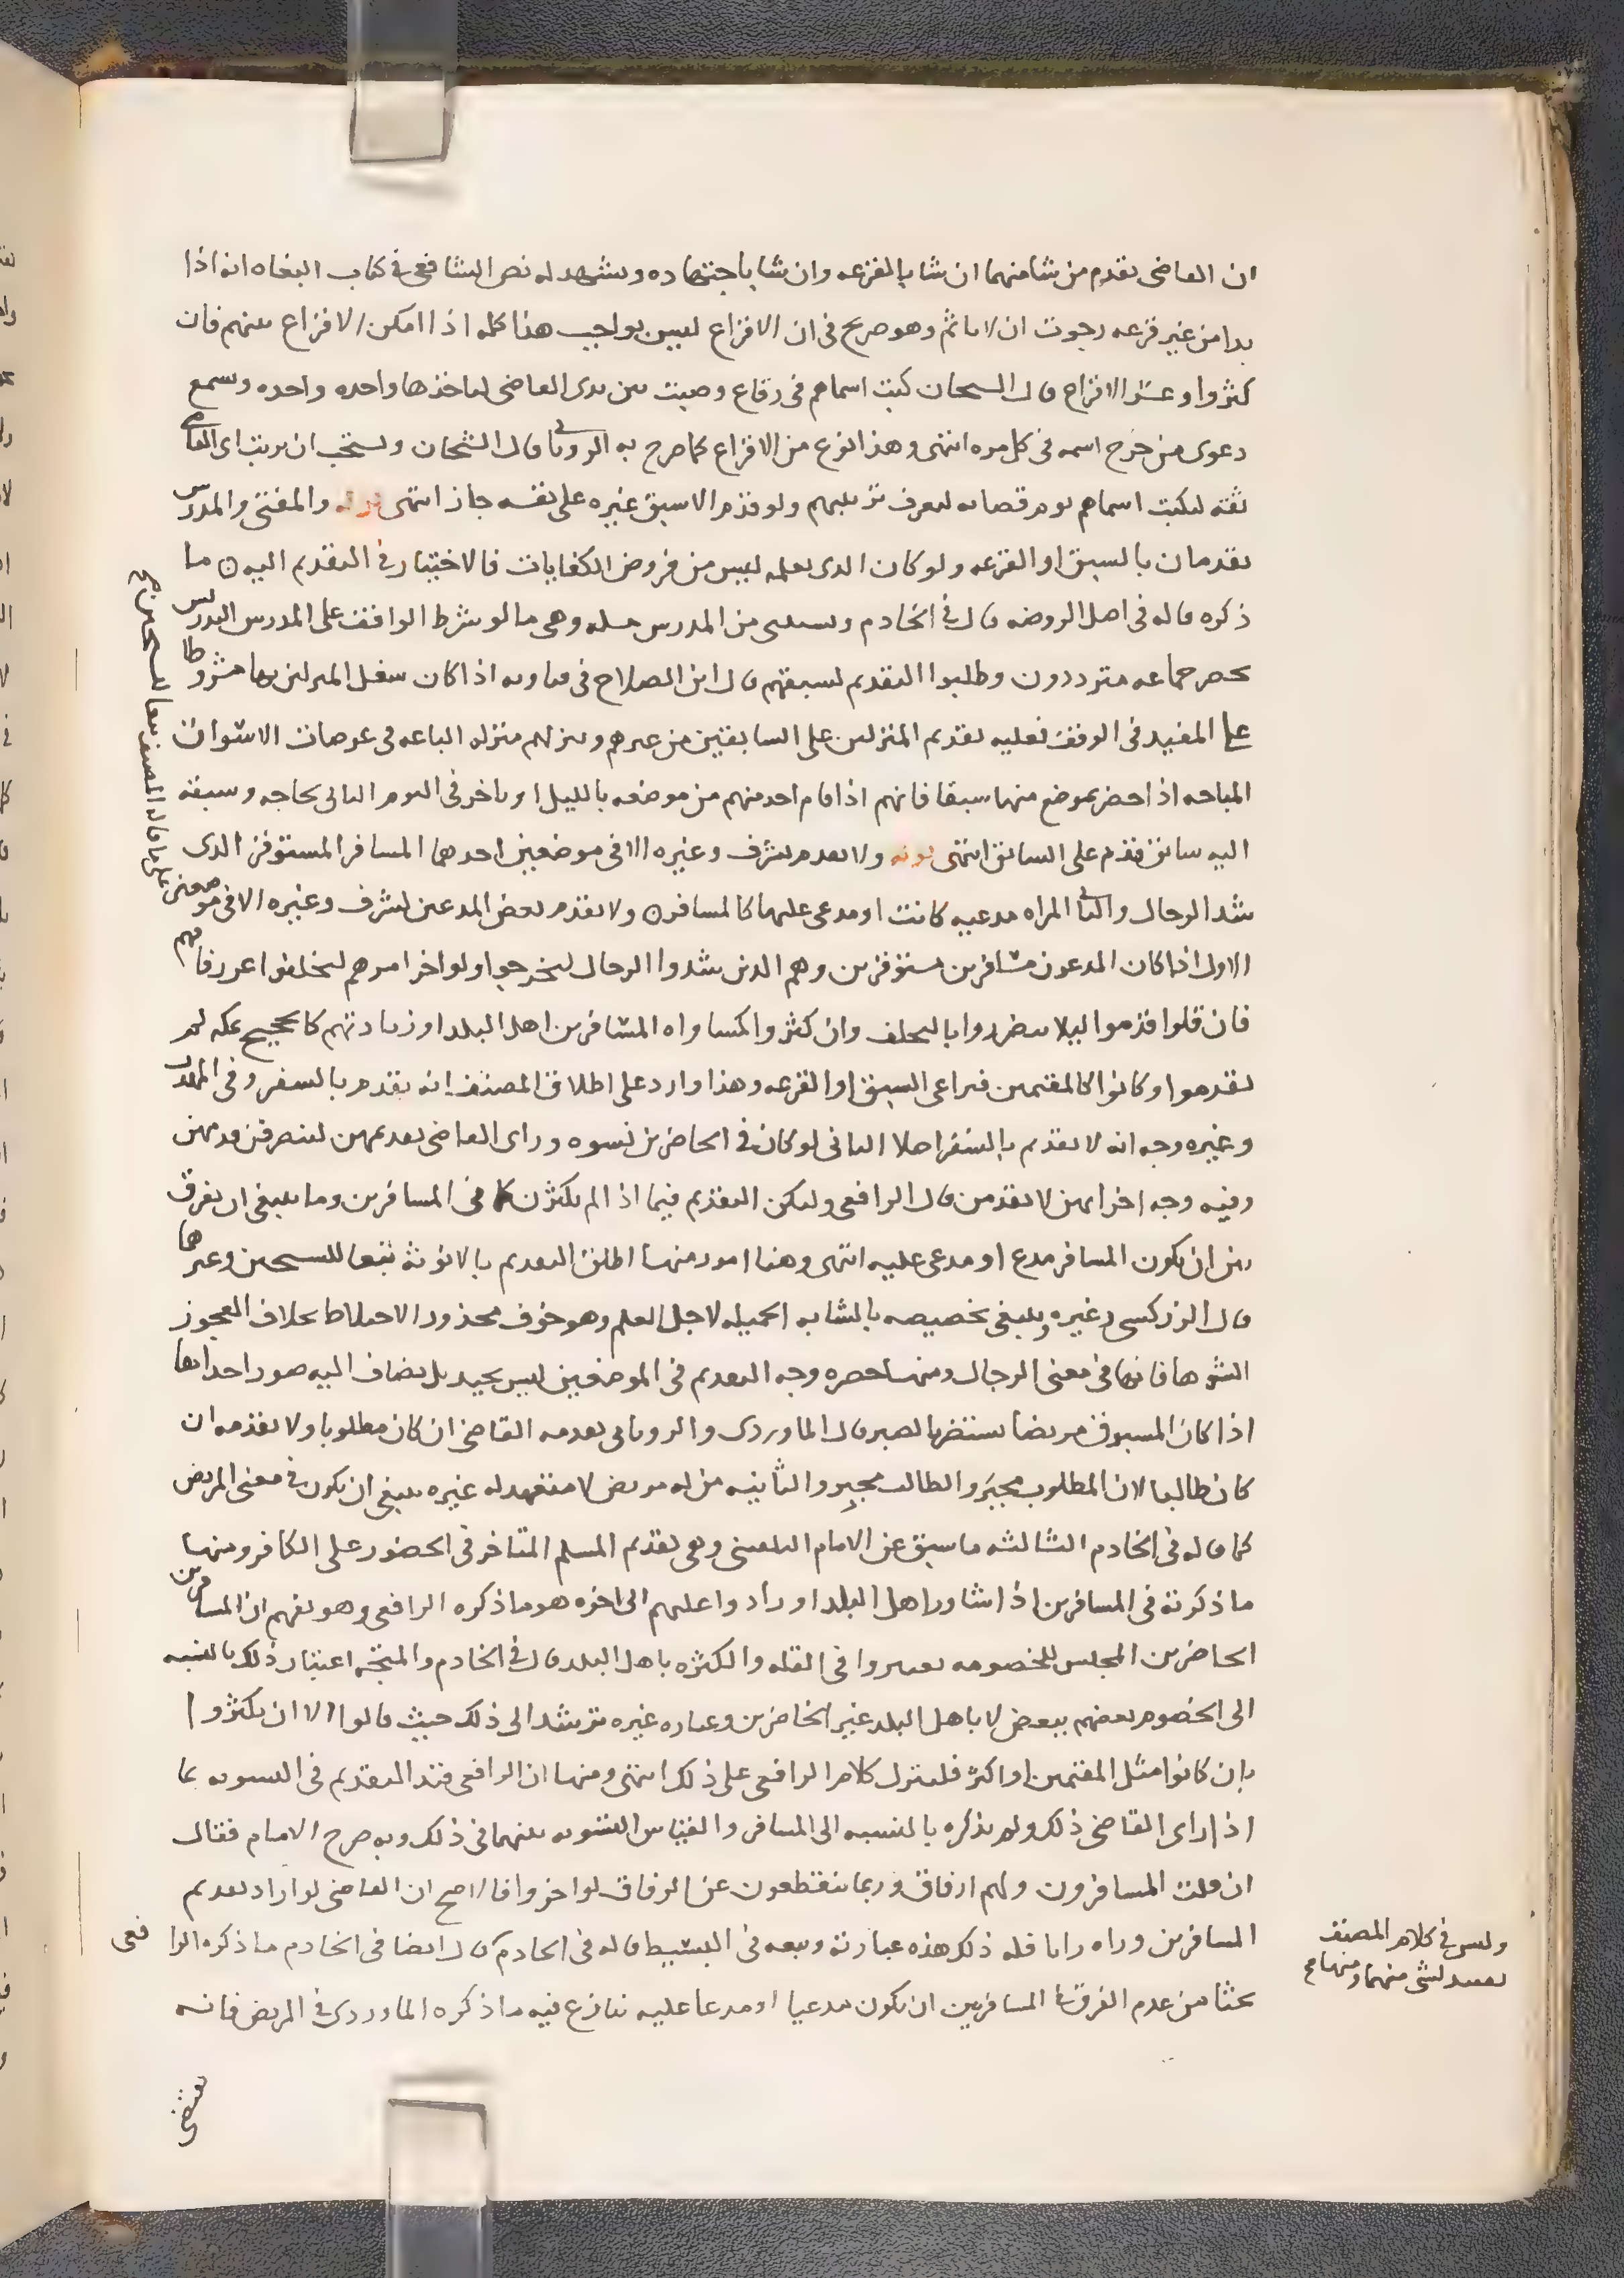 ان القاضى يقدم من شا منهما ان شا بالقرعه وان شا باجتهاده ويشهد له نص الشافعى فى كتاب البغاه انه اذا
بدا من غير قرعه رجوت ان لا ياثم وهو صريح فى ان الاقراع ليس بواجب هذا كله اذا امكن الاقراع بينهم فان
كثروا وعسر الاقراع قال الشيخان كتبت اسماهم فى رقاع وصبت بين يدى القاضى لياخذها واحده واحده ويسمع
دعوى من خرج اسمه فى كل مره انتهى وهذا نوع من الاقراع كما صرح به الرويانى قال الشيخان ويستحب ان يرتب اى القاضى
ثقه ليكتب اسماهم يوم قضائه ليعرف ترتيبهم ولو قدم الاسبق غيره على نفسه جاز انتهى قوله والمفتى والمدرس
يقدمان بالسبق او القرعه ولو كان الذى يعلمه ليس من فروض الكفايات فالاختيار فى التقديم اليه ما
ذكره قاله فى اصل الروضه قال فى الخادم ويستثنى من المدرس مسله وهى ما لو شرط الواقف على المدرس التدريس
بحضر جماعه مترددون وطلبوا التقديم لسبقهم قال ابن الصلاح فى فتاويه اذا كان شغل المنزلين بها مشروطا
على المفيد فى الوقف فعليه تقديم المنزلين على السابقين من غيرهم وينزلهم منزله الباعه فى عرصات الاسواق
المباحه اذا حضر بموضع منها سبقا فانهم اذا قام احد منهم من موضعه بالليل او تاخر فى اليوم التالى لحاجه وسبقه
اليه سابق قدم على السابق انتهى قوله ولا يقدم بشرف وغيره الا فى موضعين احدهما المسافر المستوفز الذى
شد الرحال والثانى المراه مدعيه كانت او مدعى عليها كالمسافر ولا يقدم بعض المدعين لشرف وغيره الا فى موضعين
الاول اذا كان المدعون مسافرين مستوفزين وهم الذين شدوا الرحال ليخرجوا ولو اخر امرهم لتخلفوا عن رفاقهم
فان قلوا قدموا ليلا يتضرروا بالتخلف وان كثروا كمساواه المسافرين اهل البلد او زيادتهم كالحجيج بمكه لم
يقدموا وكانوا كالمقيمين فيراعى السبق او القرعه وهذا وارد على اطلاق المصنف انه يقدم بالسفر وفى المهذب
وغيره وجه انه لا يقدم بالسفر اصلا الثانى لو كان فى الحاضرين نسوه وراى القاضى تقديمهن لينصرفن قدمهن
وفيه وجه اخر انهن لا يقدمن قال الرافعى وليكن التقديم فيما اذا لم يكثرن كما فى المسافرين وما ينبغى ان يفرق
بين ان يكون المسافر مدع او مدعى عليه انتهى وهنا امور منها اطلق التقديم بالانوثه تبعا للشيخين وغيرهما
قال الزركشى وغيره وينبغى تخصيصه بالشابه الجميله لاجل العلم وهو خوف محذور الاختلاط بخلاف العجوز
الشوها فانها فى معنى الرجال ومنها حصره وجه التقديم فى الموضعين ليس بجيد بل يضاف اليه صور احداها
اذا كان المسبوق مريضا يستضر بالصبر قال الماوردى والرويانى يقدمه القاضى ان كان مطلوبا ولا يقدمه ان
كان طالبا لان المطلوب مجبَر والطالب مجبِر والثانيه من له مريض لا متعهد له غيره ينبغى ان يكون فى معنى المريض
كما قاله فى الخادم الثالثه ما سبق عن الامام البلقينى وهى تقديم المسلم المتاخر فى الحضور على الكافر ومنها
ما ذكرته فى المسافرين اذا شاورا اهل البلد او زادوا عليهم الى اخره هو ما ذكره الرافعى وهو يفهم ان المسافرين
الحاضرين المجلس للخصومه يعتبروا فى القله والكثره باهل البلد قال فى الخادم والمتجه اعتبار ذلك بالنسبه
الى الخصوم بعضهم ببعض لا باهل البلد غير الحاضرين وعباره غيره ترشد الى ذلك حيث قالوا الا ان يكثروا
بان كانوا مثل المقيمين او اكثر فلينزل كلام الرافعى على ذلك انتهى ومنها ان الرافعى قيد التقديم فى النسوه بما
اذا راى القاضى ذلك ولم يذكره بالنسبه الى المسافر والقياس التسويه بينهما فى ذلك وبه صرح الامام فقال
ان قلت المسافرون ولهم ارفاق وربما ينقطعون عن الرفاق لو اخروا فالاصح ان القاضى لو اراد تقديم
المسافرين وراه رايا فله ذلك هذه عبارته وتبعه فى البسيط قاله فى الخادم قال ايضا فى الخادم ما ذكره الرافعى
بحثا من عدم الفرق فى المسافرين ان يكون مدعيا او مدعا عليه ينازع فيه ما ذكره الماوردى فى المريض فانه
يقتضى
على ما قاله المصنف تبعا للشيخين صح
وليس فى كلام المصنف
تقييد لشى منهما ومنها صح